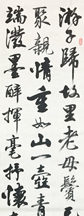 游子歸故里老母鬢
聚親情重如山一壺青
端潑墨醉揮毫抒懷